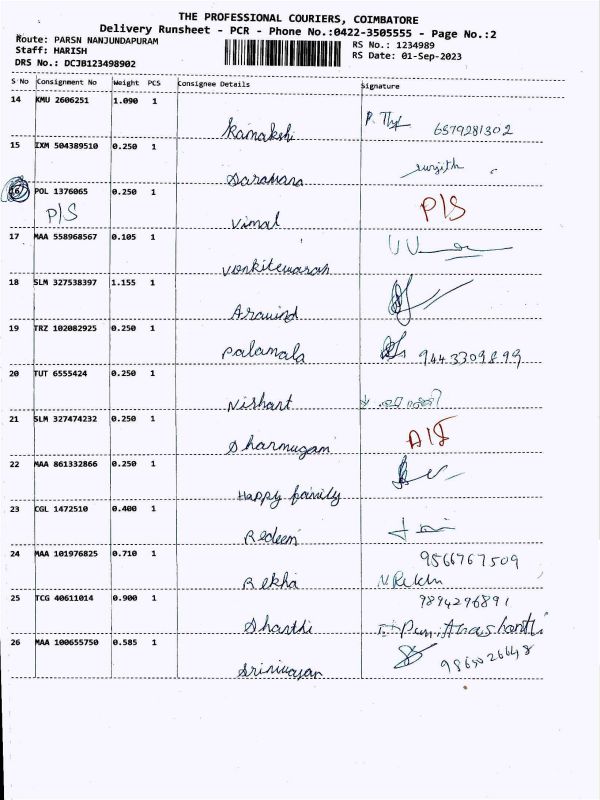 THE PROFESSIONAL COURIERS, COIMBATORE
Delivery Runsheet - PCR - Phone No.:0422-3505555 - Page No.:2
Route: PARSN NANJUNDAPURAM
RS No.: 1234989
Staff: HARISH
RS Date: 01-Sep-2023
DRS No.: DCJB123498902
S No Consignment No Weight PCS Consignee Details Signature
14 KMU 2606251 1.090 1
Kanakshi 6579281302
15 IXM 504389510 0.250 1
Surjith
16 POL 1376065 0.250 1
P/S Vimal P/S
17 MAA 558968567 0.105 1
18 SLM 327538397 1.155 1
Aravind
19 TRZ 102082925 0.250 1
Palamala 9443309899
20 TUT 6555424 0.250 1
Nishant
21 SLM 327474232 0.250 1
Sharmugam
22 MAA 861332866 0.250 1
Happy family
23 CGL 1472510 0.400 1
Redeem
24 MAA 101976825 0.710 1 9566767509
Rekha N Rekha
25 TCG 40611014 0.900 1 9894296891
Shanthi
26 MAA 100655750 0.585 1
Srinivasan 9865026648